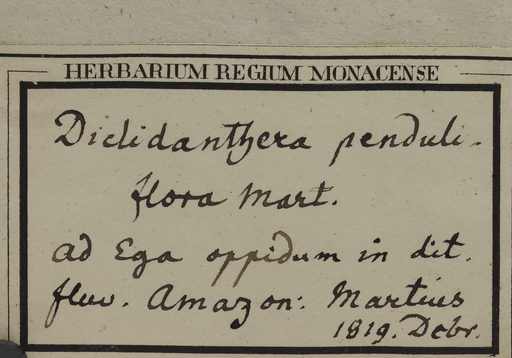 HERBARIUM REGIUM MONACENSE
Diclidanthera penduli-
flora Mart.
ad Ega oppidum in dit.
fluv. Amazon: Martius
1819. Debr.